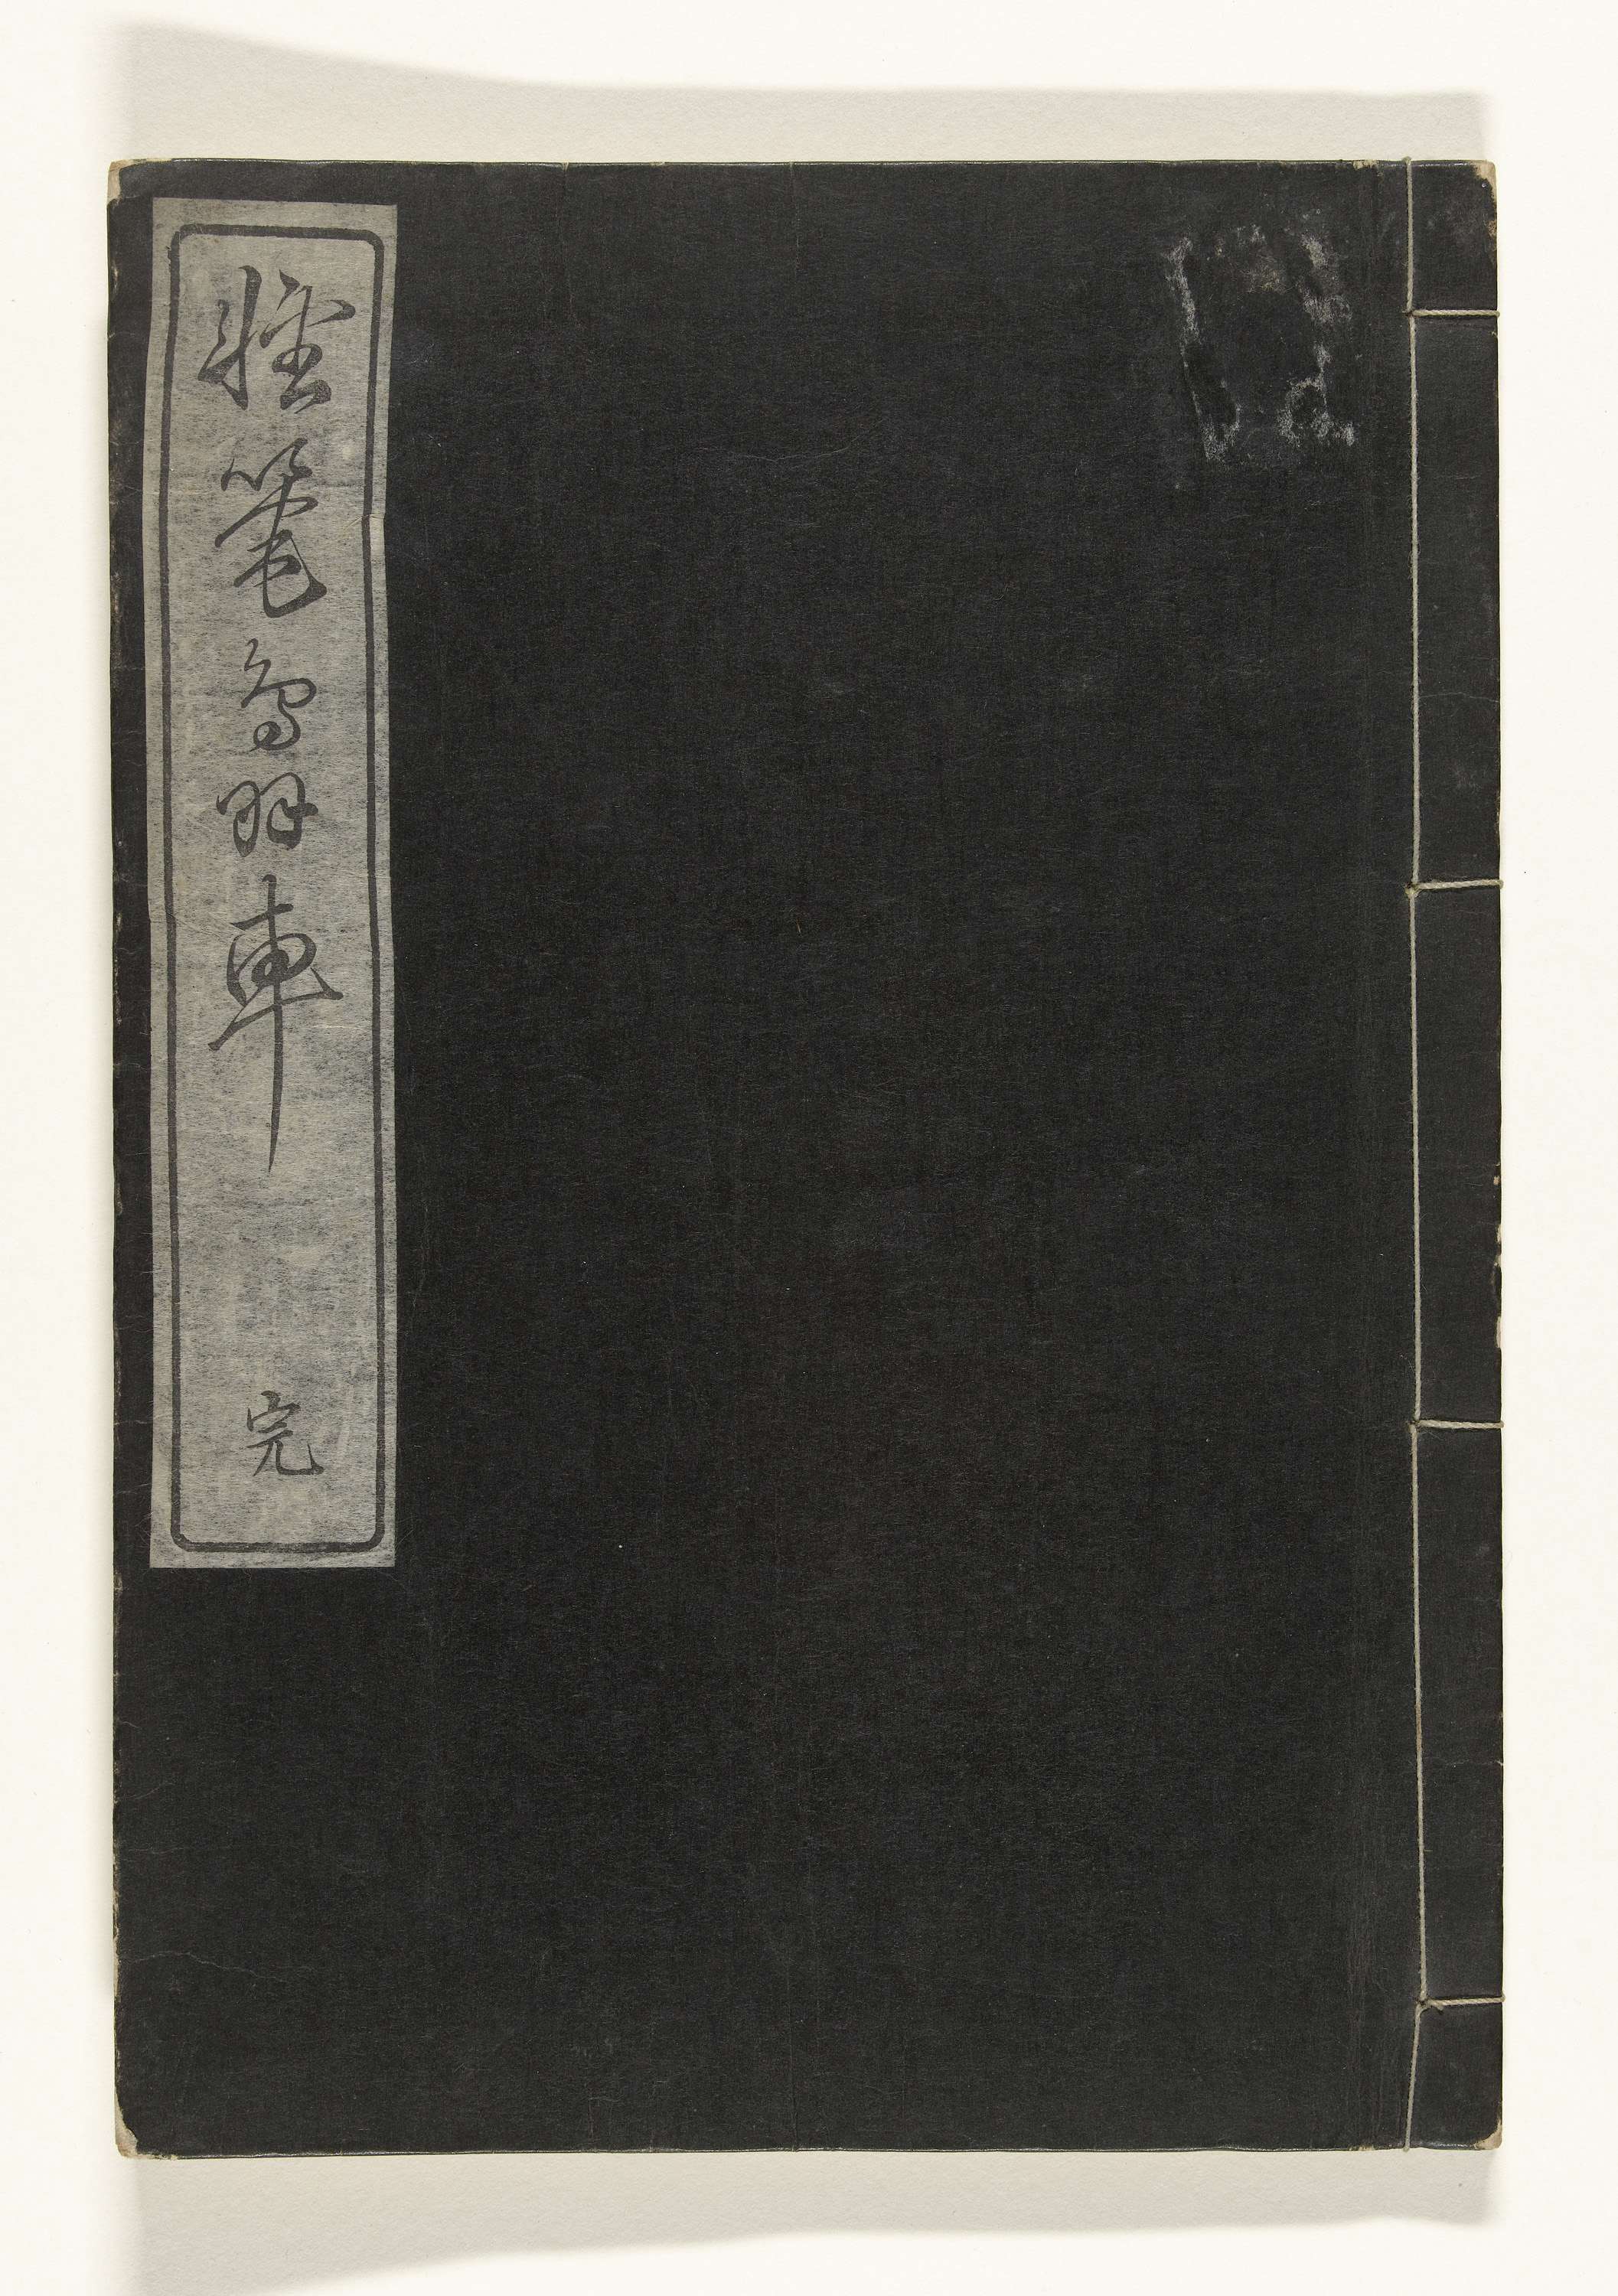 軽筆鳥羽車
完